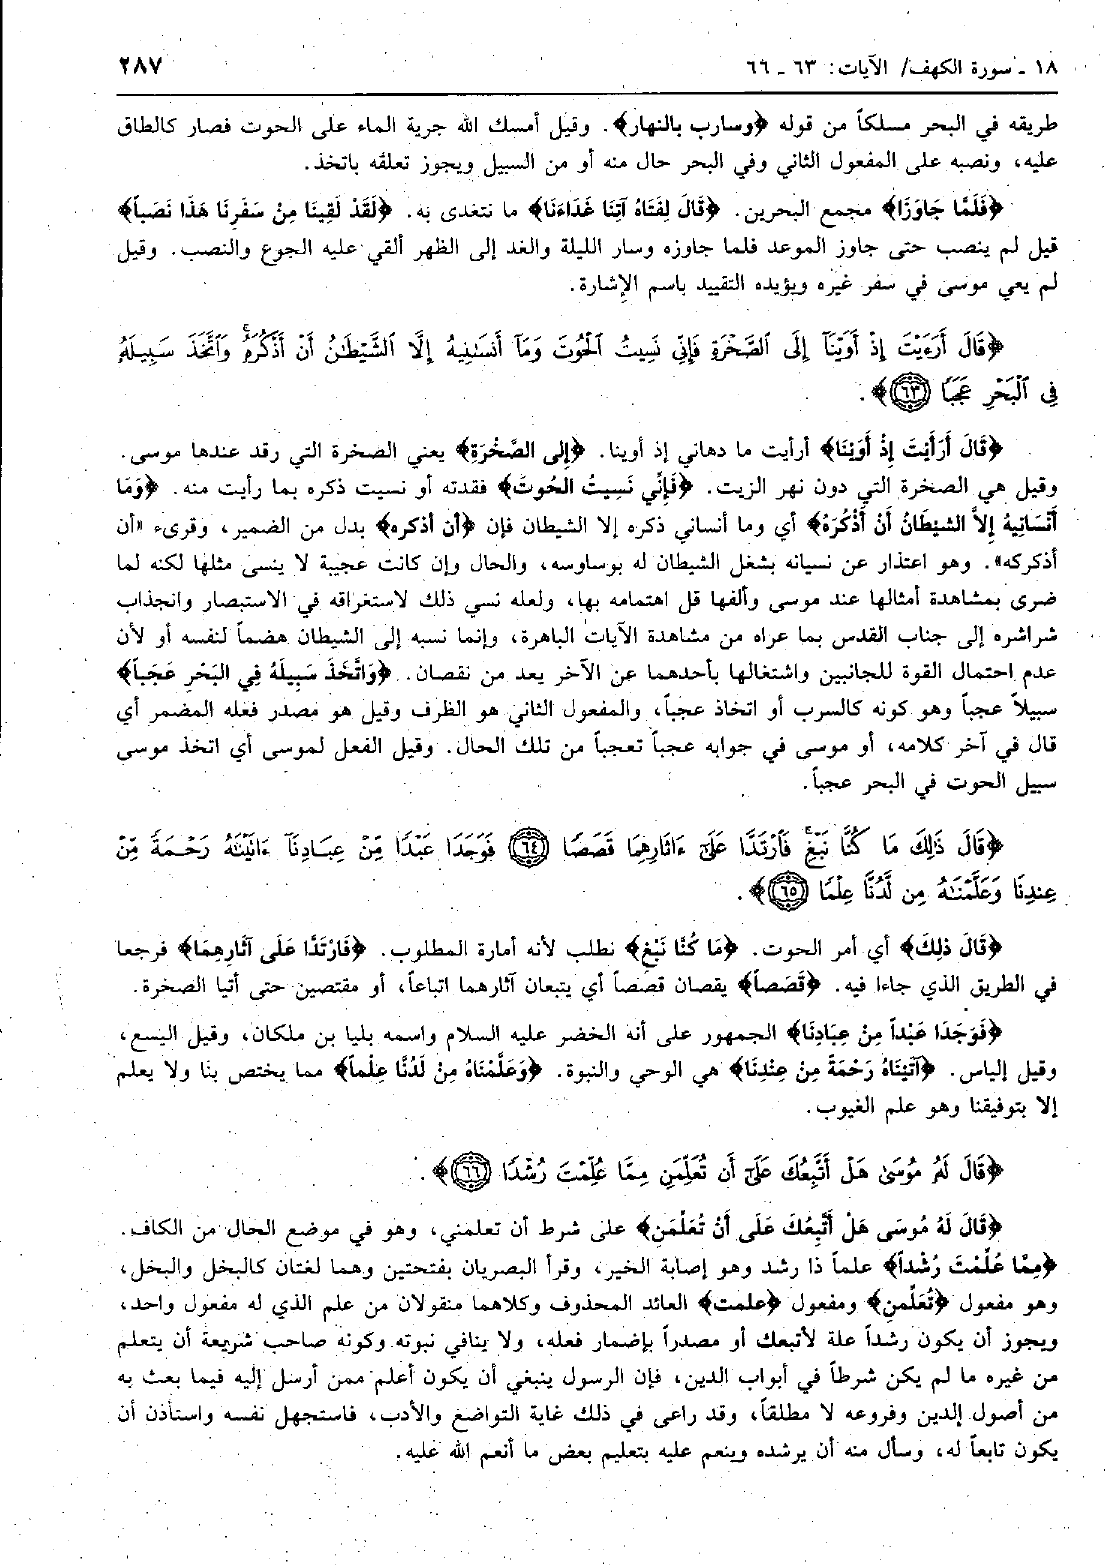 ١٨ - سورة الكهف/ الآيات: ٦٣ - ٦٦ ٢٨٧
طريقه في البحر مسلكاً من قوله ﴿وسارب بالنهار﴾. وقيل أمسك الله جرية الماء على الحوت فصار كالطاق
عليه، ونصبه على المفعول الثاني وفي البحر حال منه أو من السبيل ويجوز تعلقه باتخذ.
﴿فَلَمَّا جَاوَزَا﴾ مجمع البحرين. ﴿قَالَ لِفَتَاهُ آتِنَا غَدَاءَنَا﴾ ما نتغدى به. ﴿لَقَدْ لَقِينَا مِنْ سَفَرِنَا هَذَا نَصَباً﴾
قيل لم ينصب حتى جاوز الموعد فلما جاوزه وسار الليلة والغد إلى الظهر ألقي عليه الجوع والنصب. وقيل
لم يعي موسى في سفر غيره ويؤيده التقييد باسم الإشارة.
﴿قَالَ أَرَءَيْتَ إِذْ أَوَيْنَآ إِلَى ٱلصَّخْرَةِ فَإِنِّي نَسِيتُ ٱلْحُوتَ وَمَآ أَنسَىٰنِيهُ إِلَّا ٱلشَّيْطَٰنُ أَنْ أَذْكُرَهُۥۚ وَٱتَّخَذَ سَبِيلَهُۥ
فِي ٱلْبَحْرِ عَجَبًا ﴿٦٣﴾﴾.
﴿قَالَ أَرَأَيْتَ إِذْ أَوَيْنَا﴾ أرأيت ما دهاني إذ أوينا. ﴿إِلى الصَّخْرَةِ﴾ يعني الصخرة التي رقد عندها موسى.
وقيل هي الصخرة التي دون نهر الزيت. ﴿فَإِنِّي نَسِيتُ الحُوتَ﴾ فقدته أو نسيت ذكره بما رأيت منه. ﴿وَمَا
أَنْسَانِيهُ إِلاَّ الشيْطَانُ أَنْ أَذْكُرَهُ﴾ أي وما أنساني ذكره إلا الشيطان فإن ﴿أن أذكره﴾ بدل من الضمير، وقرىء «أن
أذكركه». وهو اعتذار عن نسيانه بشغل الشيطان له بوساوسه، والحال وإن كانت عجيبة لا ينسى مثلها لكنه لما
ضرى بمشاهدة أمثالها عند موسى وألفها قل اهتمامه بها، ولعله نسي ذلك لاستغراقه في الاستبصار وانجذاب
شراشره إلى جناب القدس بما عراه من مشاهدة الآيات الباهرة، وإنما نسبه إلى الشيطان هضماً لنفسه أو لأن
عدم احتمال القوة للجانبين واشتغالها بأحدهما عن الآخر يعد من نقصان. ﴿وَاتَّخَذَ سَبِيلَهُ فِي البَحْرِ عَجَباً﴾
سبيلاً عجباً وهو كونه كالسرب أو اتخاذ عجباً، والمفعول الثاني هو الظرف وقيل هو مصدر فعله المضمر أي
قال في آخر كلامه، أو موسى في جوابه عجباً تعجباً من تلك الحال. وقيل الفعل لموسى أي اتخذ موسى
سبيل الحوت في البحر عجباً.
﴿قَالَ ذَٰلِكَ مَا كُنَّا نَبْغِۚ فَٱرْتَدَّا عَلَىٰٓ ءَاثَارِهِمَا قَصَصًا ﴿٦٤﴾ فَوَجَدَا عَبْدًا مِّنْ عِبَادِنَآ ءَاتَيْنَٰهُ رَحْمَةً مِّنْ
عِندِنَا وَعَلَّمْنَٰهُ مِن لَّدُنَّا عِلْمًا ﴿٦٥﴾﴾.
﴿قَالَ ذلِكَ﴾ أي أمر الحوت. ﴿مَا كُنَّا نَبْغِ﴾ نطلب لأنه أمارة المطلوب. ﴿فَارْتَدَّا عَلَى آثَارِهِمَا﴾ فرجعا
في الطريق الذي جاءا فيه. ﴿قَصَصاً﴾ يقصان قصصاً أي يتبعان آثارهما اتباعاً، أو مقتصين حتى أتيا الصخرة.
﴿فَوَجَدَا عَبْداً مِنْ عِبَادِنَا﴾ الجمهور على أنه الخضر عليه السلام واسمه بليا بن ملكان، وقيل اليسع،
وقيل إلياس. ﴿آتَيْنَاهُ رَحْمَةً مِنْ عِنْدِنَا﴾ هي الوحي والنبوة. ﴿وَعَلَّمْنَاهُ مِنْ لَدُنَّا عِلْماً﴾ مما يختص بنا ولا يعلم
إلا بتوفيقنا وهو علم الغيوب.
﴿قَالَ لَهُۥ مُوسَىٰ هَلْ أَتَّبِعُكَ عَلَىٰٓ أَن تُعَلِّمَنِ مِمَّا عُلِّمْتَ رُشْدًا ﴿٦٦﴾﴾.
﴿قَالَ لَهُ مُوسَى هَلْ أَتَّبِعُكَ عَلَى أَنْ تُعَلِّمَنِ﴾ على شرط أن تعلمني، وهو في موضع الحال من الكاف.
﴿مِمَّا عُلِّمْتَ رُشْداً﴾ علماً ذا رشد وهو إصابة الخير، وقرأ البصريان بفتحتين وهما لغتان كالبخل والبخل،
وهو مفعول ﴿تُعَلِّمنِ﴾ ومفعول ﴿علمت﴾ العائد المحذوف وكلاهما منقولان من علم الذي له مفعول واحد،
ويجوز أن يكون رشداً علة لأتبعك أو مصدراً بإضمار فعله، ولا ينافي نبوته وكونه صاحب شريعة أن يتعلم
من غيره ما لم يكن شرطاً في أبواب الدين، فإن الرسول ينبغي أن يكون أعلم ممن أرسل إليه فيما بعث به
من أصول الدين وفروعه لا مطلقاً، وقد راعى في ذلك غاية التواضع والأدب، فاستجهل نفسه واستأذن أن
يكون تابعاً له، وسأل منه أن يرشده وينعم عليه بتعليم بعض ما أنعم الله عليه.